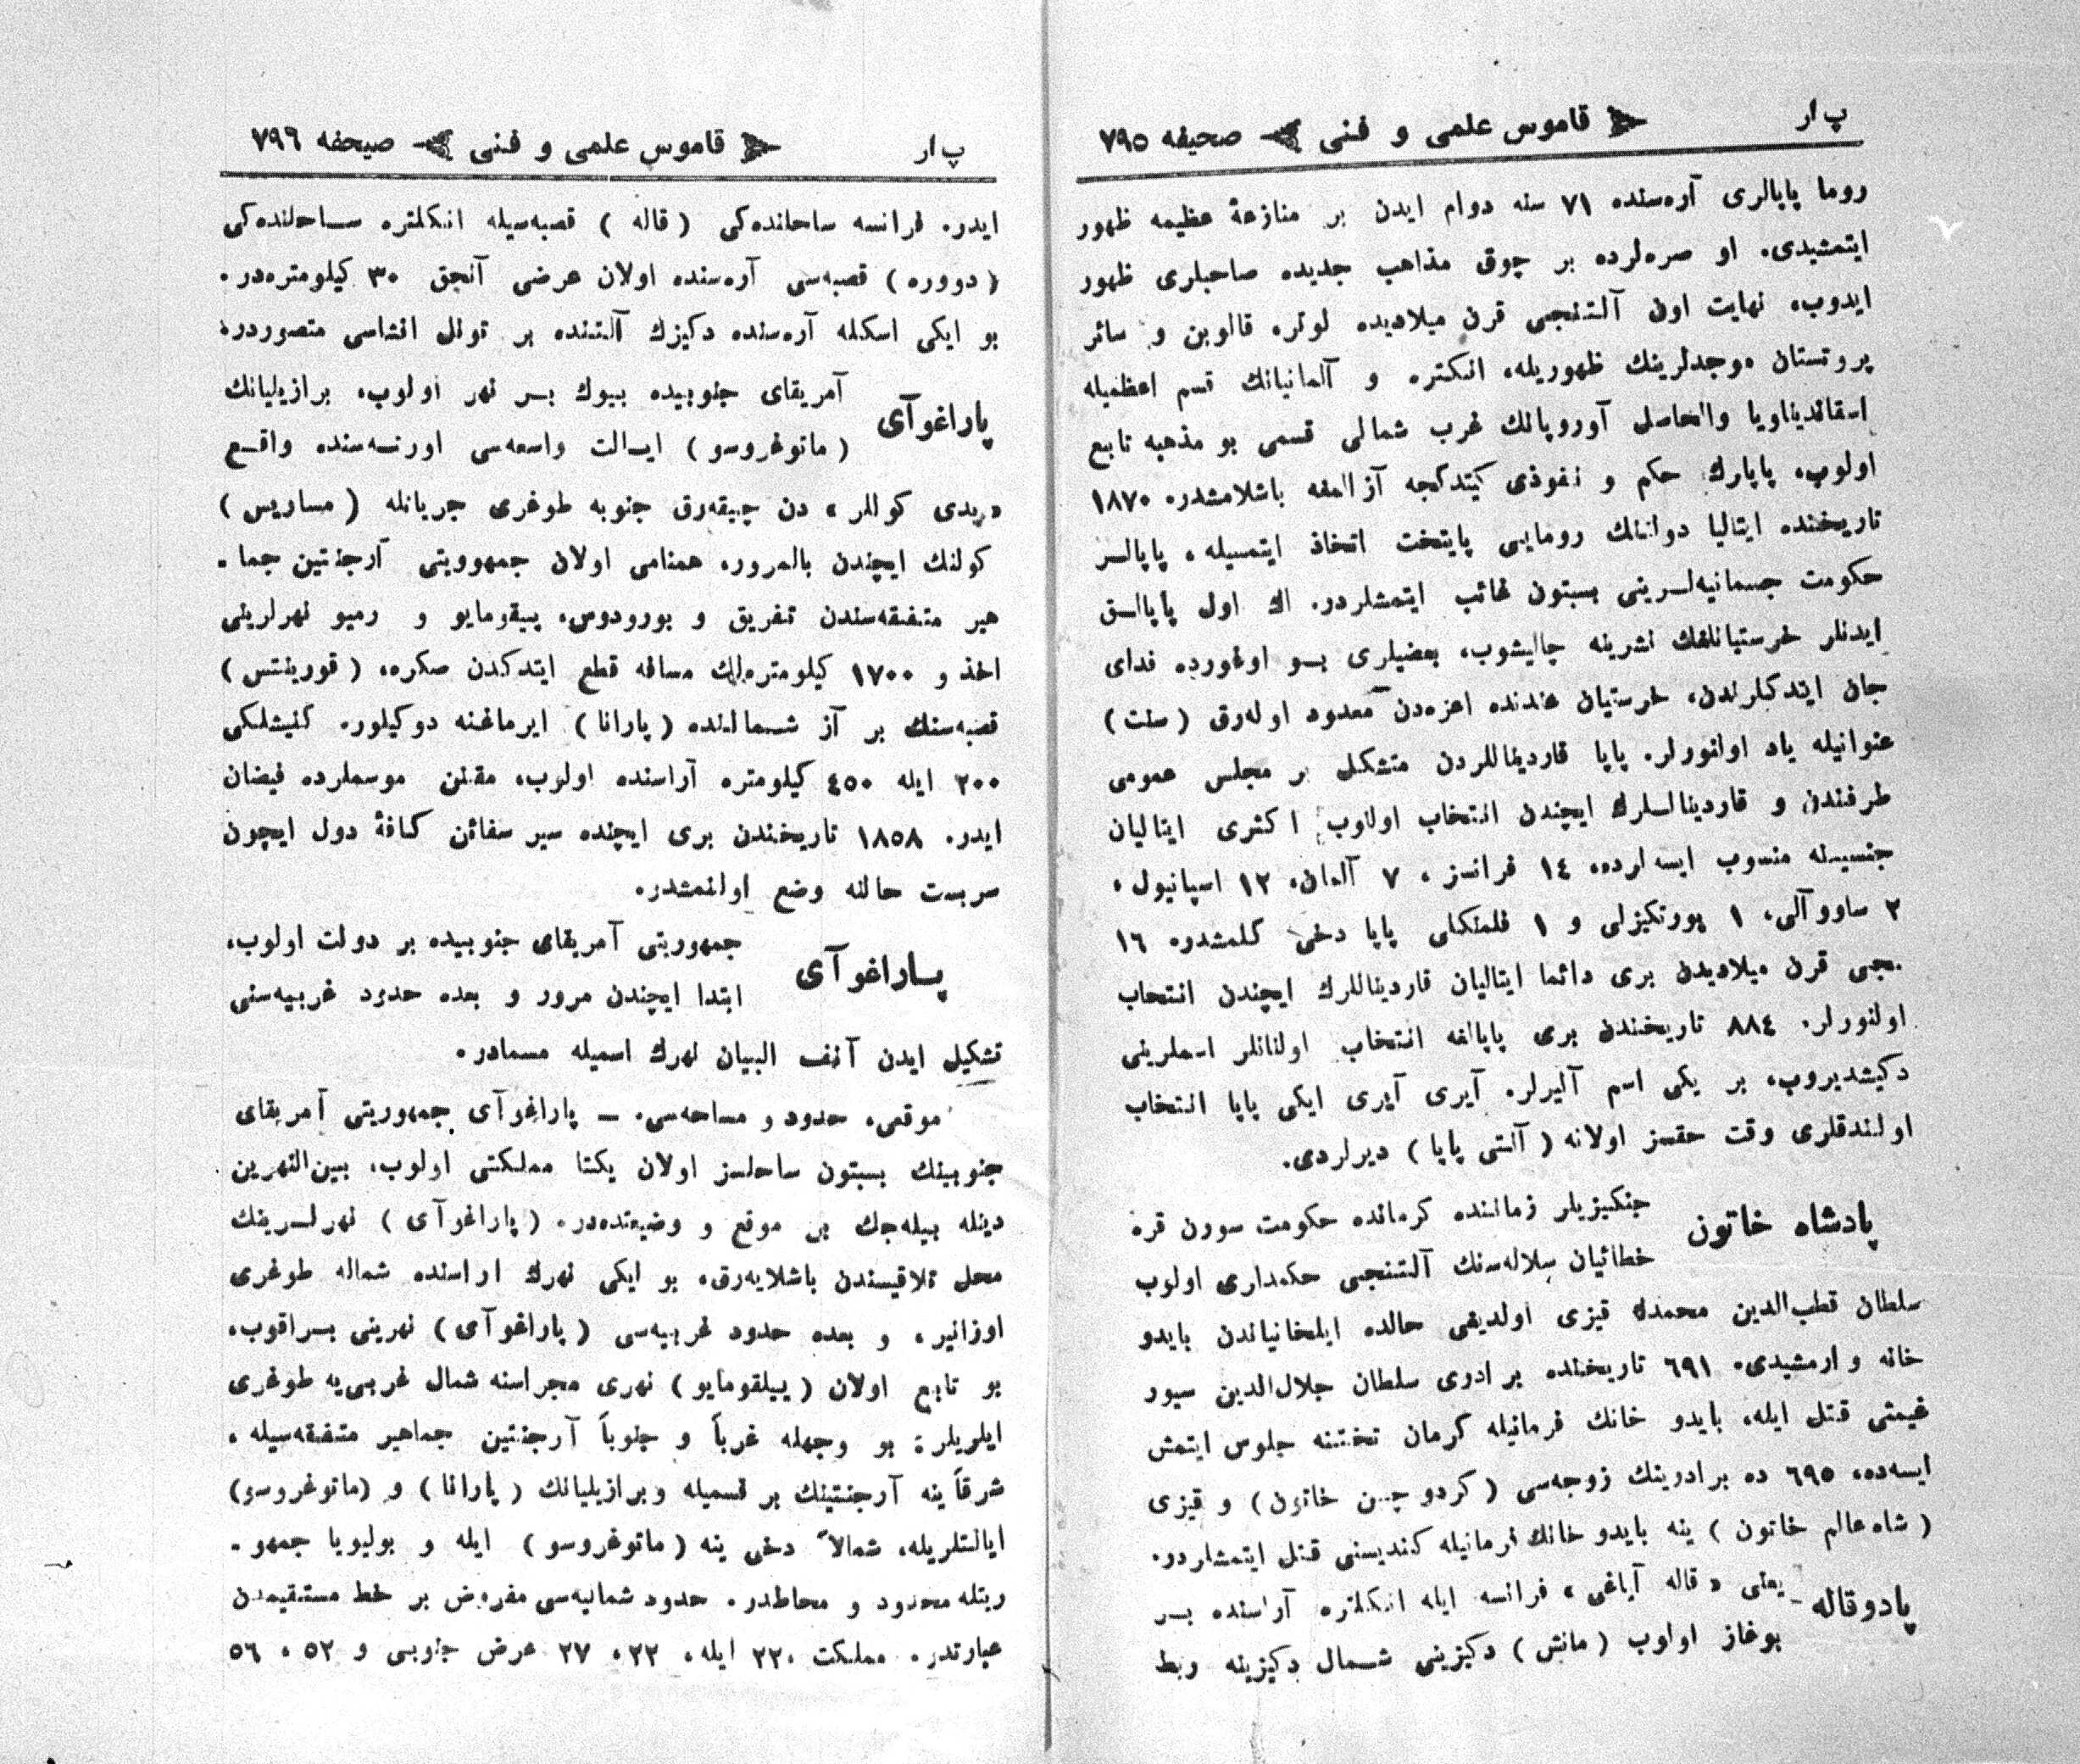 پ‌ار قاموس علمی و فنی صحیفه ٧٩٥
روما پاپالری آره‌سنده ٧١ سنه دوام ایدن بر منازعهٔ عظیمه ظهور
ایتمشیدی. او صره‌لرده بر چوق مذاهب جدیده صاحبلری ظهور
ایدوب، نهایت اون آلتنجی قرن میلادیده لوتر، قالوین و سائر
پروتستان موجدلرینك ظهوریله، انكلتره و آلمانیانك قسم اعظمیله
اسقاندیناویا والحاصل آوروپانك غرب شمالی قسمی بو مذهبه تابع
اولوب، پاپارك حكم و نفوذی كیتدكجه آزالمغه باشلامشدر. ١٨٧٠
تاریخنده ایتالیا دولتنك رومایی پایتخت اتخاذ ایتمسیله، پاپالر
حكومت جسمانیه‌لرینی بسبتون غائب ایتمشلردر. اك اول پاپالق
ایدنلر خرستیانلغك نشرینه چالیشوب، بعضیلری بو اوغورده فدای
جان ایتدكلرندن، خرستیان عندنده اعزه‌دن معدود اوله‌رق (سنت)
عنوانیله یاد اولنورلر. پاپا قاردیناللردن متشكل بر مجلس عمومی
طرفندن و قاردیناللرك ایچندن انتخاب اولنوب، اكثری ایتالیان
جنسیتنه منسوب ایسه‌لرده، ١٤ فرانسز، ٧ آلمان، ١٢ اسپانیول،
٢ ساووآلی، ١ پورتكیزلی و ١ فلمنكلی پاپا دخی كلمشدر. ١٦
نجی قرن میلادیدن بری دائما ایتالیان قاردیناللرك ایچندن انتخاب
اولنورلر. ٨٨٤ تاریخندن بری پاپالغه انتخاب اولنانلر اسملرینی
دكیشدیروب، بر یكی اسم آلیرلر. آیری آیری ایكی پاپا انتخاب
اولندقلری وقت حقسز اولانه (آنتی پاپا) دیرلردی.
پادشاه خاتون جنكیزیلر زماننده كرمانده حكومت سورن قره
خطائیان سلاله‌سنك آلتنجی حكمداری اولوب
سلطان قطب‌الدین محمدك قیزی اولدیغی حالده ایلخانیاندن بایدو
خانه وارمشیدی. ٦٩١ تاریخنده برادری سلطان جلال‌الدین سیور
غیمتی قتل ایله، بایدو خانك فرمانیله كرمان تختنه جلوس ایتمش
ایسه‌ده، ٦٩٥ ده برادرینك زوجه‌سی (كردوچین خاتون) و قیزی
(شاه عالم خاتون) ینه بایدو خانك فرمانیله كندیسنی قتل ایتمشلردر.
پادوقاله - یعنی «قاله آیاغی» فرانسه ایله انكلتره آراسنده بر
بوغاز اولوب (مانش) دكیزینی شمال دكیزینه ربط
پ‌ار قاموس علمی و فنی صیحفه ٧٩٦
ایدر. فرانسه ساحلنده‌كی (قاله) قصبه‌سیله انكلتره ساحلنده‌كی
(دووره) قصبه‌سی آره‌سنده اولان عرضی آنجق ٣٠ كیلومتره‌در.
بو ایكی اسكله آره‌سنده دكیزك آلتنده بر تونل انشاسی متصوردر.
پاراغوآی آمریقای جنوبیده بیوك بر نهر اولوب، برازیلیانك
(ماتوغروسو) ایالت واسعه‌سی اورته‌سنده واقع
«یدی كوللر» دن چیقه‌رق جنوبه طوغری جریانله (مساریس)
كولنك ایچندن بالمرور، همنامی اولان جمهوویتی آرجنتین جما-
هیر متفقه‌سندن تفریق و بورودوس، پیقومایو و رمیو نهرلرینی
اخذ و ١٧٠٠ كیلومتره‌لك مسافه قطع ایتدكدن صكره، (قورینتس)
قصبه‌سنك بر آز شمالنده (پارانا) ایرماغنه دوكیلور. كنیشلكی
٢٠٠ ایله ٤٥٠ كیلومتره آراسنده اولوب، مقنن موسملرده فیضان
ایدر. ١٨٥٨ تاریخندن بری ایچنده سیر سفائن كافهٔ دول ایچون
سربست حالنه وضع اولنمشدر.
پاراغوآی جمهوریتی آمریقای جنوبیده بر دولت اولوب،
ابتدا ایچندن مرور و بعده حدود غربیه‌سنی
تشكیل ایدن آنف البیان نهرك اسمیله مسمادر.
موقعی، حدود و مساحه‌سی. ـ پاراغوآی جمهوریتی آمریقای
جنوبینك بسبتون ساحلسز اولان یكتا مملكتی اولوب، بین‌النهرین
دینله بیله‌جك بر موقع و وضیعتده‌در. (پاراغوآی) نهرلرینك
محل تلاقیسندن باشلایه‌رق، بو ایكی نهرك اراسنده شماله طوغری
اوزانیر، و بعده حدود غربیه‌سی (پاراغوآی) نهرینی براقوب،
بو تابع اولان (پیلقومایو) نهری مجراسنه شمال غربی‌یه طوغری
ایلریلر: بو وجهله غرباً و جنوباً آرجنتین جماهیر متفقه‌سیله،
شرقاً ینه آرجنتینك بر قسمیله و برازیلیانك (پارانا) و (ماتوغروسو)
ایالتلریله، شمالاً دخی ینه (ماتوغروسو) ایله و بولیویا جمهو-
ریتله محدود و محاطدر. حدود شمالیه‌سی مفروض بر خط مستقیمدن
عبارتدر. مملكت ٢٢٠ ایله، ٢٢، ٢٧ عرض جنوبی و ٥٢، ٥٦